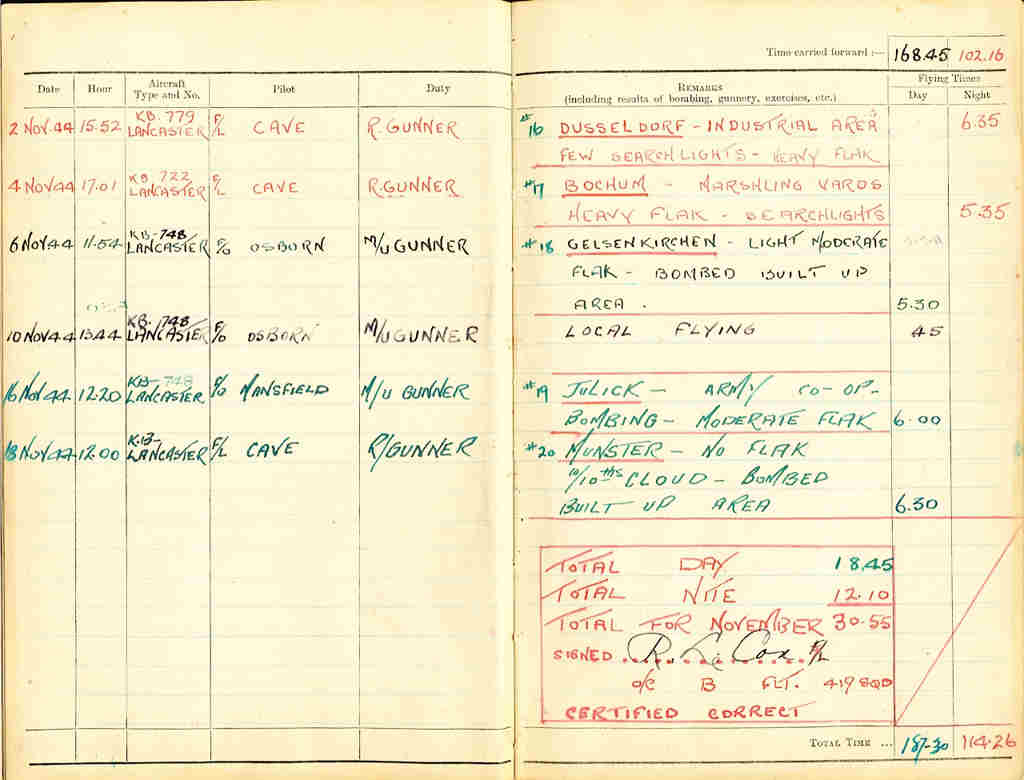 Time carried forward :— 168.45 102.16
Date Hour Aircraft Type and No. Pilot Duty REMARKS (including results of bombing, gunnery, exercises, etc.) Flying Times Day Night
2 NOV. 44 15.52 KB. 779 LANCASTER F/L CAVE R. GUNNER #16 DUSSELDORF - INDUSTRIAL AREA 6.35
FEW SEARCHLIGHTS - HEAVY FLAK
4 NOV 44 17.01 KB 722 LANCASTER F/L CAVE R. GUNNER #17 BOCHUM - MARSHLING YARDS
HEAVY FLAK - SEARCHLIGHTS 5.35
6 NOV 44 11.54 KB-748 LANCASTER F/O OSBORN M/U GUNNER #18 GELSENKIRCHEN - LIGHT MODERATE
FLAK - BOMBED BUILT UP
AREA . 5.30
10 NOV 44 13.44 KB. 748 LANCASTER F/O OSBORN M/U GUNNER LOCAL FLYING 45
16 NOV 44 12.20 KB-748 LANCASTER F/O MANSFIELD M/U GUNNER #19 JULICK - ARMY CO-OP-
BOMBING - MODERATE FLAK 6.00
18 NOV 44 12.00 K.B- LANCASTER F/L CAVE R/GUNNER #20 MUNSTER - NO FLAK
10/10ths CLOUD - BOMBED
BUILT UP AREA 6.30
TOTAL DAY 18.45
TOTAL NITE 12.10
TOTAL FOR NOVEMBER 30.55
SIGNED R. L. Cox F/L
O/C B FLT. 419 SQD
CERTIFIED CORRECT
TOTAL TIME ... 187.30 114.26